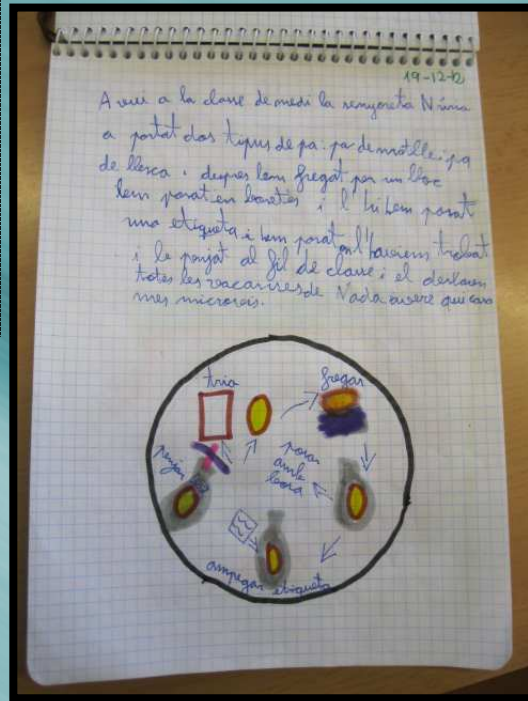 19-12-12
A vui a la classe de medi la senyoreta Núria
a portat dos tipus de pa: pa de motlle i pa
de llesca. despres lem fregat per un lloc
lem posat en bosetes i l'hi hem posat
una etiqueta i hem posat on l'haviem trobat
i le penjat al fil de classe i el deixarem
totes les vacances de Nadal a vere que
mes microbis.
tria
fregar
posar
amb
bossa
penjar
ampegar etiqueta